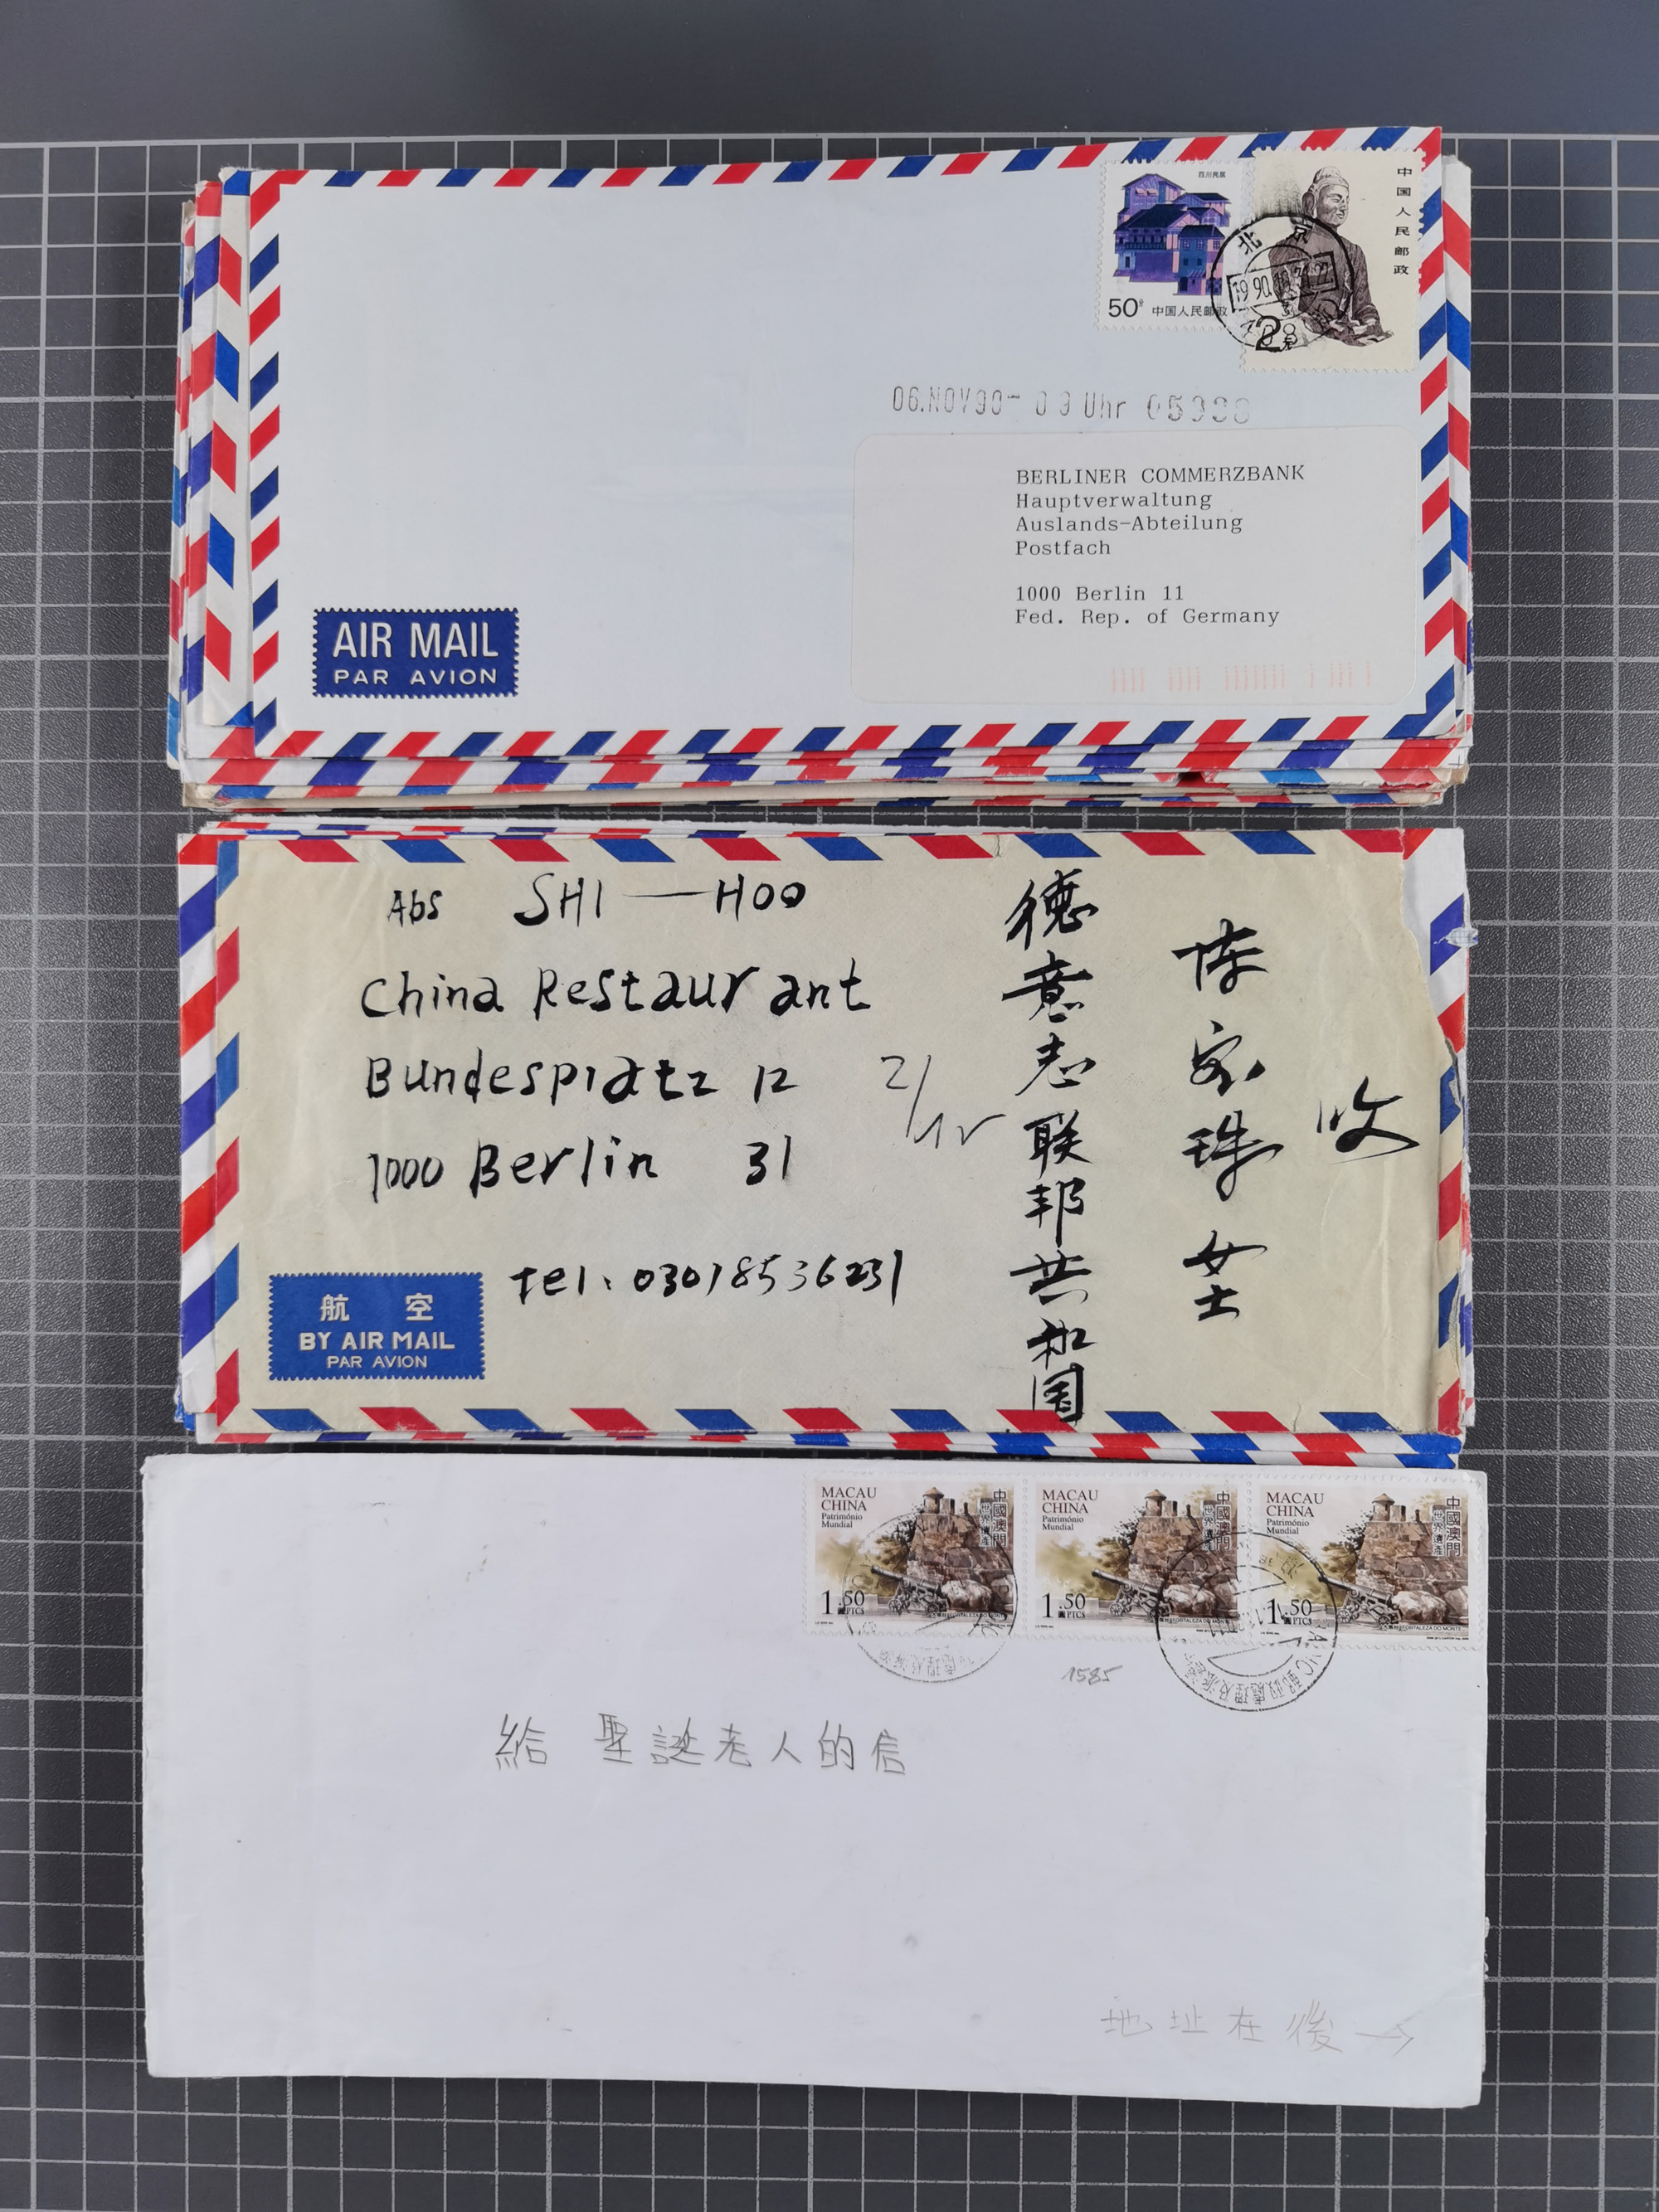 四川民居
50分 中国人民邮政
中国人民邮政
北京
2元
06.NOV90- 09 Uhr
BERLINER COMMERZBANK
Hauptverwaltung
Auslands-Abteilung
Postfach
1000 Berlin 11
Fed. Rep. of Germany
AIR MAIL
PAR AVION
Abs SHI—HOO
China Restaurant
Bundesplatz 12
1000 Berlin 31
tel: 03018536231
德意志联邦共和国
陈家珠女士
收
航空
BY AIR MAIL
PAR AVION
MACAU
CHINA
Património
Mundial
中國澳門
世界遺產
1.50
PTCS
MACAU
CHINA
Património
Mundial
中國澳門
世界遺產
1.50
PTCS
FORTALEZA DO MONTE
MACAU
CHINA
Património
Mundial
中國澳門
世界遺產
1.50
PTCS
FORTALEZA DO MONTE
1585
給 聖誕老人的信
地址在後→